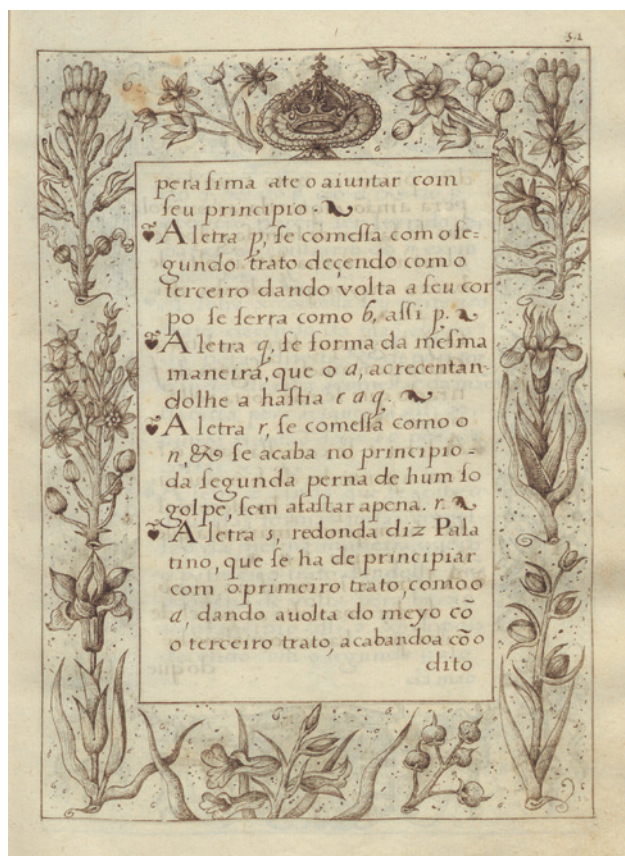 51
pera ſima ate o aiuntar com
ſeu principio.
A letra p, ſe comeſſa com o ſe=
gundo trato deçendo com o
terceiro dando volta a ſeu cor
po ſe ſerra como b, aſſi p.
A letra q, ſe forma da meſma
maneira, que o a, acrecentan-
dolhe a haſtia c a q.
A letra r, ſe comeſſa como o
n, & ſe acaba no principio =
da ſegunda perna de hum ſo
golpe, ſem afaſtar apena. r.
A letra s, redonda diz Pala
tino, que ſe ha de principiar
com o primeiro trato, como o
a, dando auolta do meyo cõ
o terceiro trato, acabandoa cõ o
dito